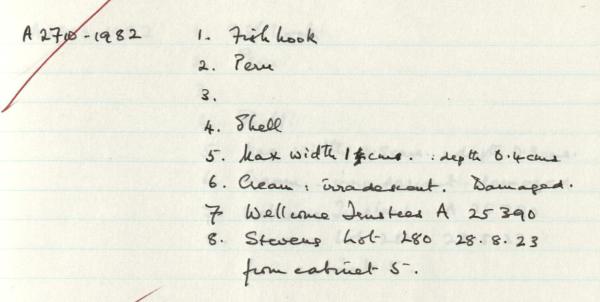 A 2710-1982 1. Fish hook
2. Peru
3.
4. Shell
5. Max width 1 cms. : depth 0.4cms
6. Cream : irradescent. Damaged.
7 Wellcome Trustees A 25390
8. Stevens Lot 280 28.8.23
from cabinet 5.